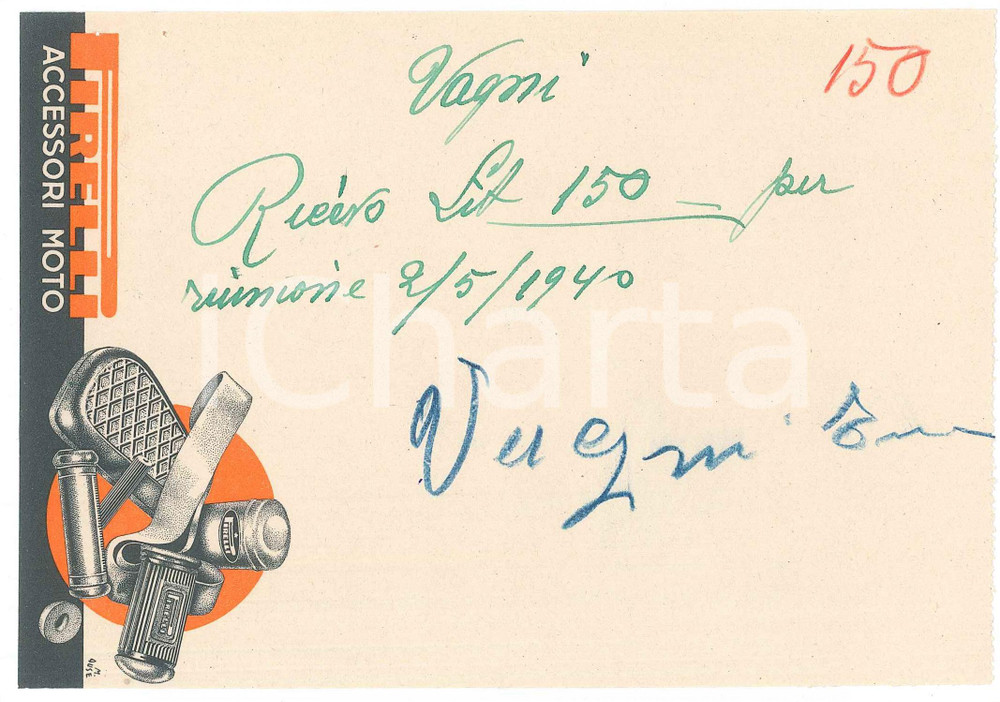 PIRELLI
ACCESSORI MOTO
Vagni
150
Ricevo Lit 150 _ per
riunione 2/5/1940
iCharta
Vagni
PIRELLI
PIRELLI
M. DUSE